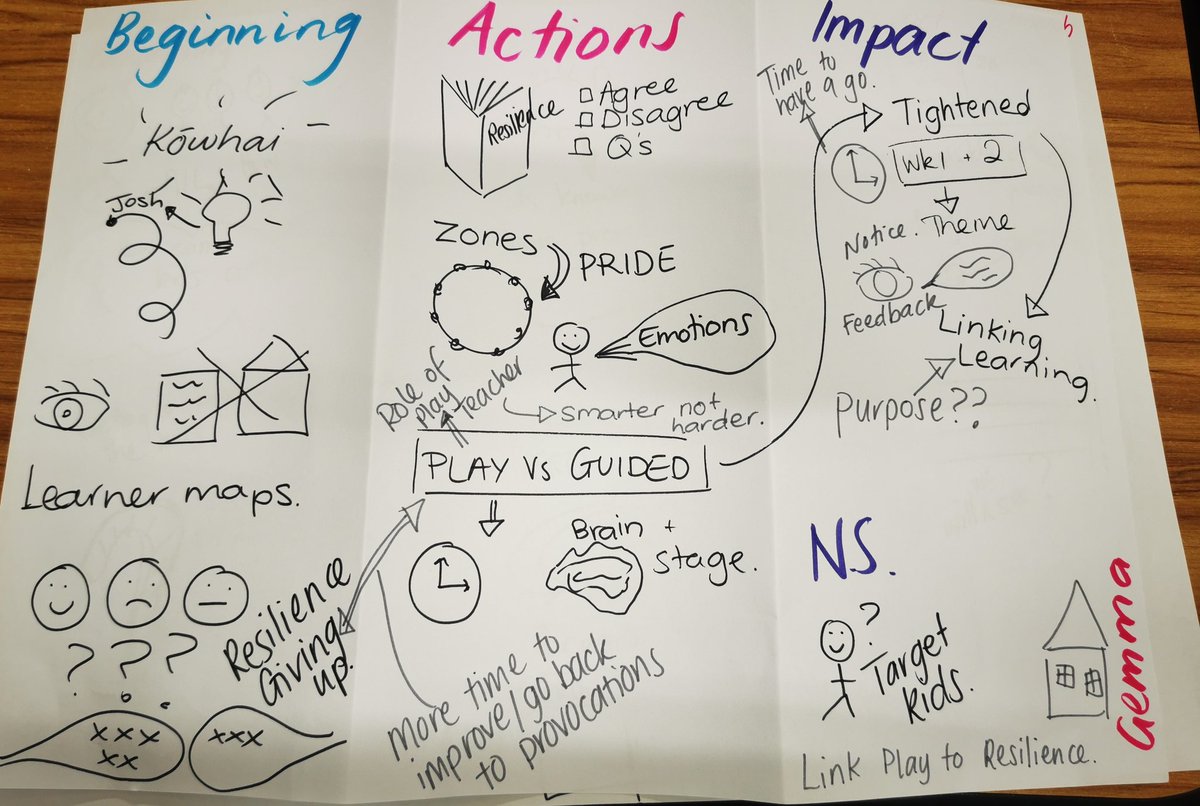 Beginning
Kōwhai
Josh
Learner maps.
? ? ?
Resilience
Giving
up.
xxx
xx
xxx
Actions
Resilience
Agree
Disagree
Q's
Zones
PRIDE
Emotions
Role of
play
Teacher
Smarter not
harder.
PLAY vs GUIDED
Brain +
Stage.
More time to
improve/go back
to provocations
Impact
Time to
have a go.
Tightened
Wk1 + 2
Notice. Theme
Feedback
Linking
Learning.
Purpose??
N.S.
?
Target
kids.
Link Play to Resilience.
Gemma